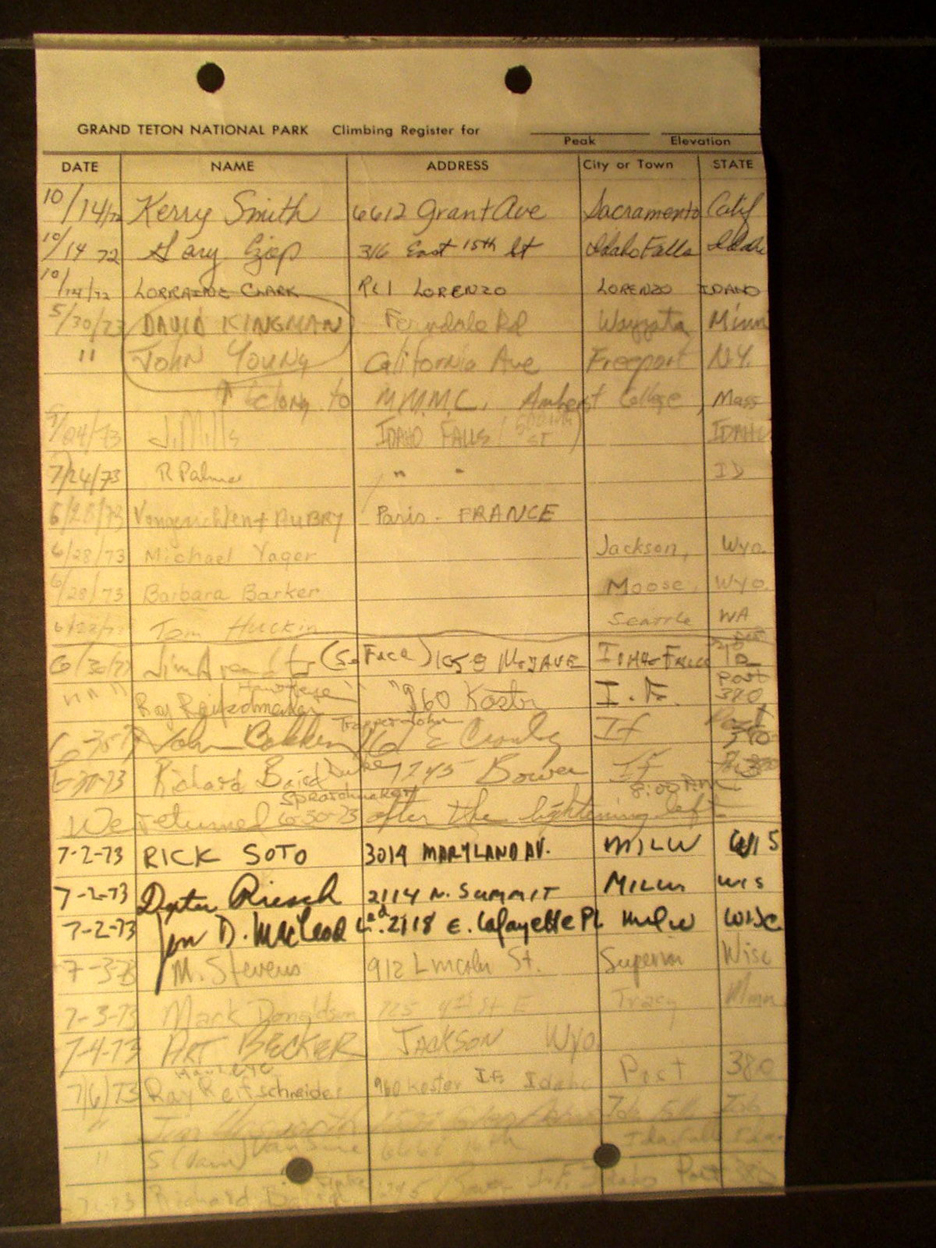 GRAND TETON NATIONAL PARK Climbing Register for
Peak Elevation
DATE NAME ADDRESS City or Town STATE
10/14/72 Kerry Smith 6612 Grant Ave Sacramento Calif
10/14 72 Gary 316 East 15th St Idaho Falls Idaho
10/14/72 LORRAINE CLARK Rt 1 LORENZO LORENZO IDAHO
5/30/73 DAVID KINGMAN Ferndale Rd Wayzata Minn
" JOHN YOUNG California Ave Freeport N.Y.
↑ belong to M.M.M.C. Amherst College, Mass
/24/73 J. Mills IDAHO FALLS ST) IDAHO
7/24/73 R Palmer " " ID
6/28/73 Vongerichten + AUBRY Paris - FRANCE
6/28/73 Michael Yager Jackson, Wyo.
6/28/73 Barbara Barker Moose, Wyo.
Tom Huckin Seattle WA
6/30/73 Jim (So Face) IDAHO FALLS
" " " Ray Reitschneider 960 Koster I.F. Post 380
John Trapper John E Crowley IF Post
6-30-73 Richard Baird Duke 1745 Bower IF
Spratchucker 8:00 P.M.
We returned 6-30-73 after the lightening left
7-2-73 RICK SOTO 3014 MARYLAND AV. MILW WIS
7-2-73 Dexter Riesch 2114 N. SUMMIT MILW WIS
7-2-73 Jon D. McLeod 2118 E. Lafayette Pl Milw WISC
7-3-73 M. Stevens 912 Lincoln St. Superior Wisc
7-3-73 Mark Donaldson 725 4th St E Tracy Minn
7-4-73 ART BECKER JACKSON Wyo
7/6/73 Ray Reitschneider 960 Koster I.F. Idaho Post 380
" Ida
" S (Sam) VanSine 16th Ida Falls Idaho
Richard 1745 Bower I.F. Idaho Post 380